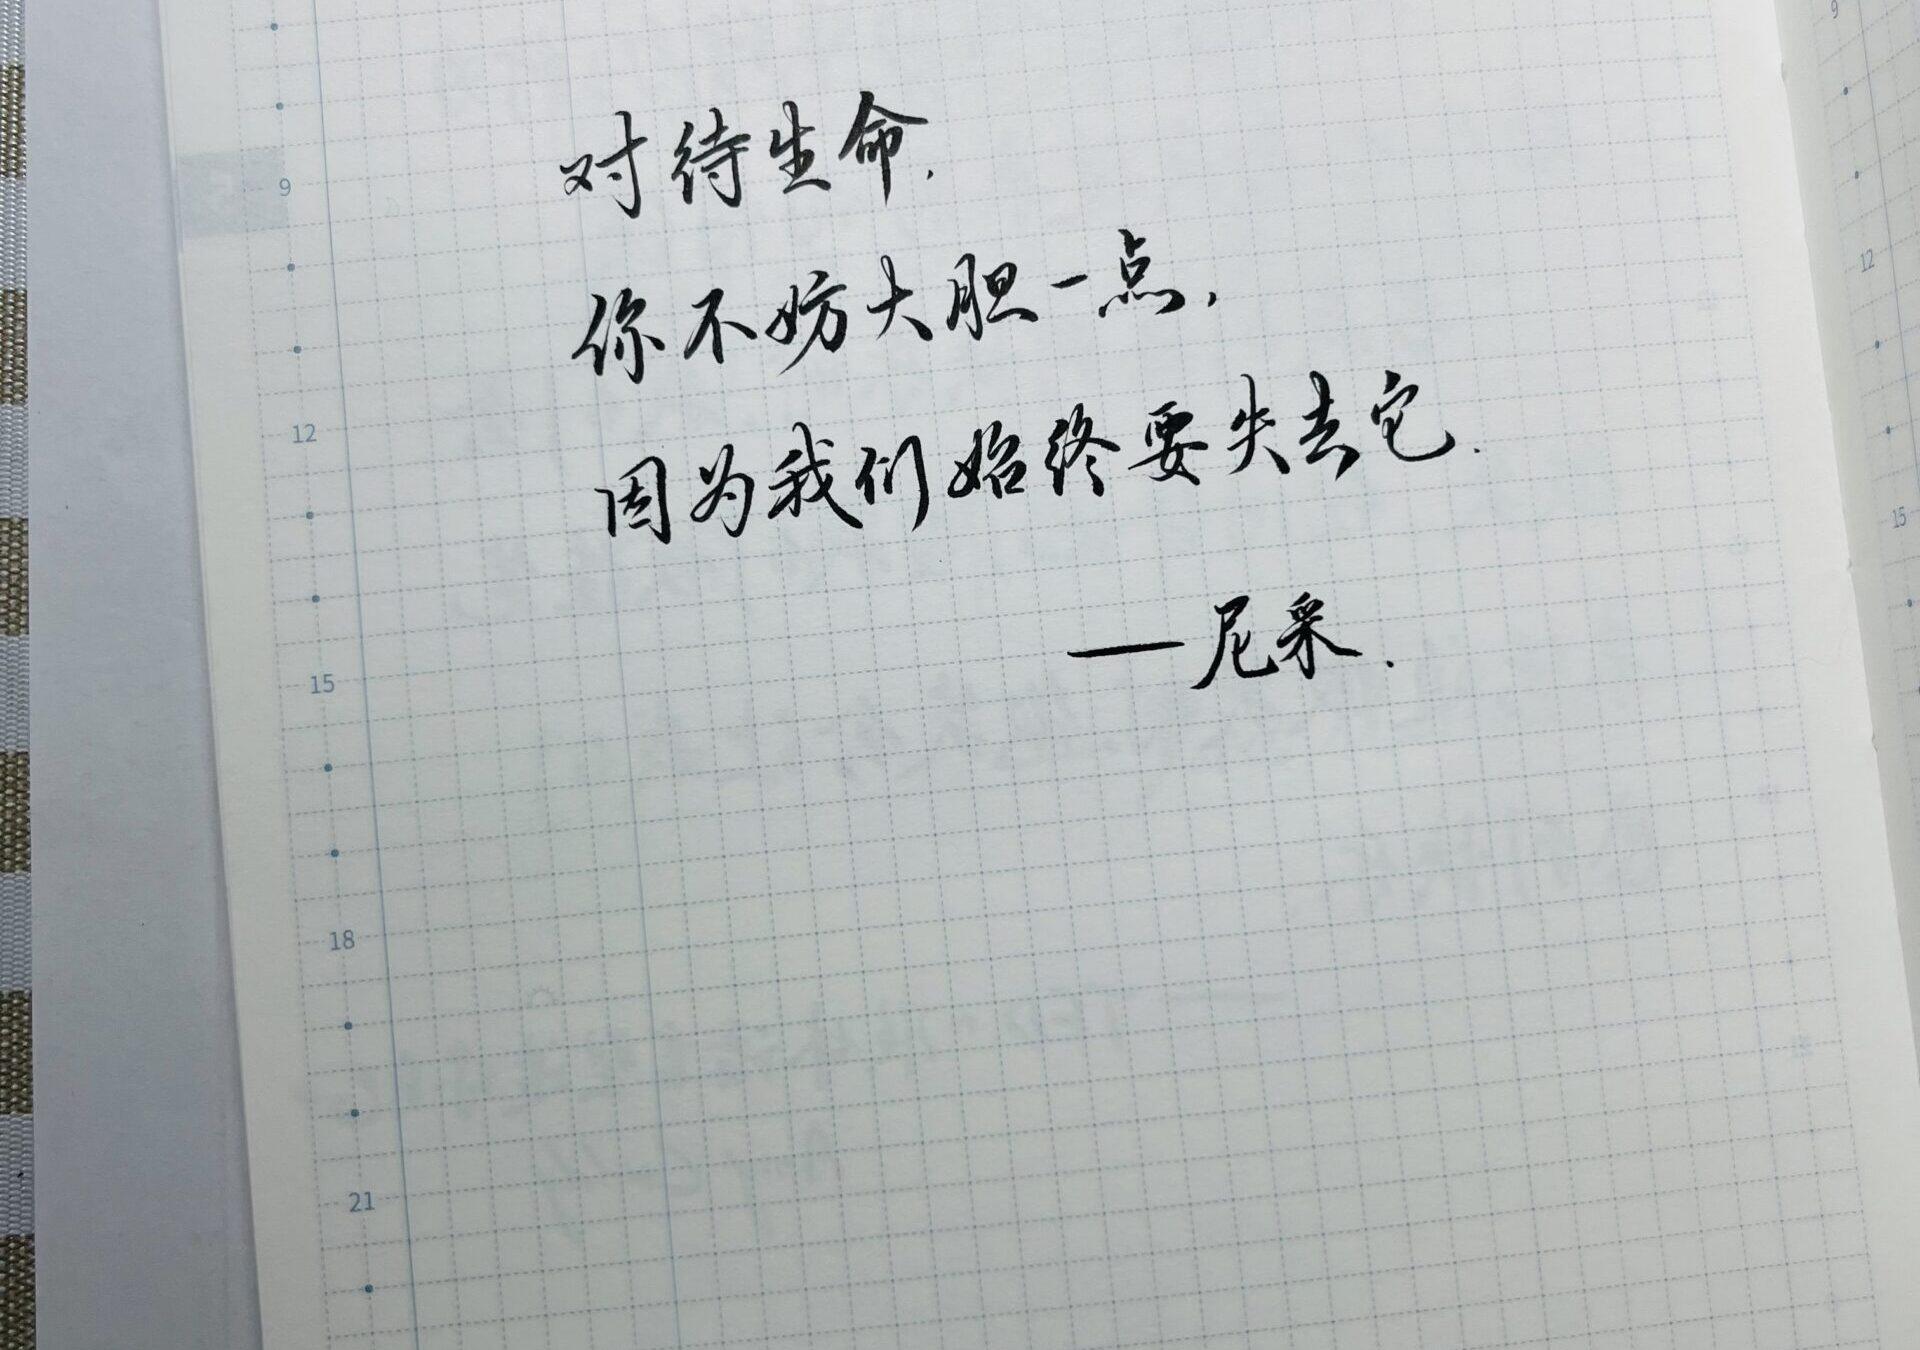 对待生命.
你不妨大胆一点,
因为我们始终要失去它.
—尼采.
9
12
15
18
21
9
12
15